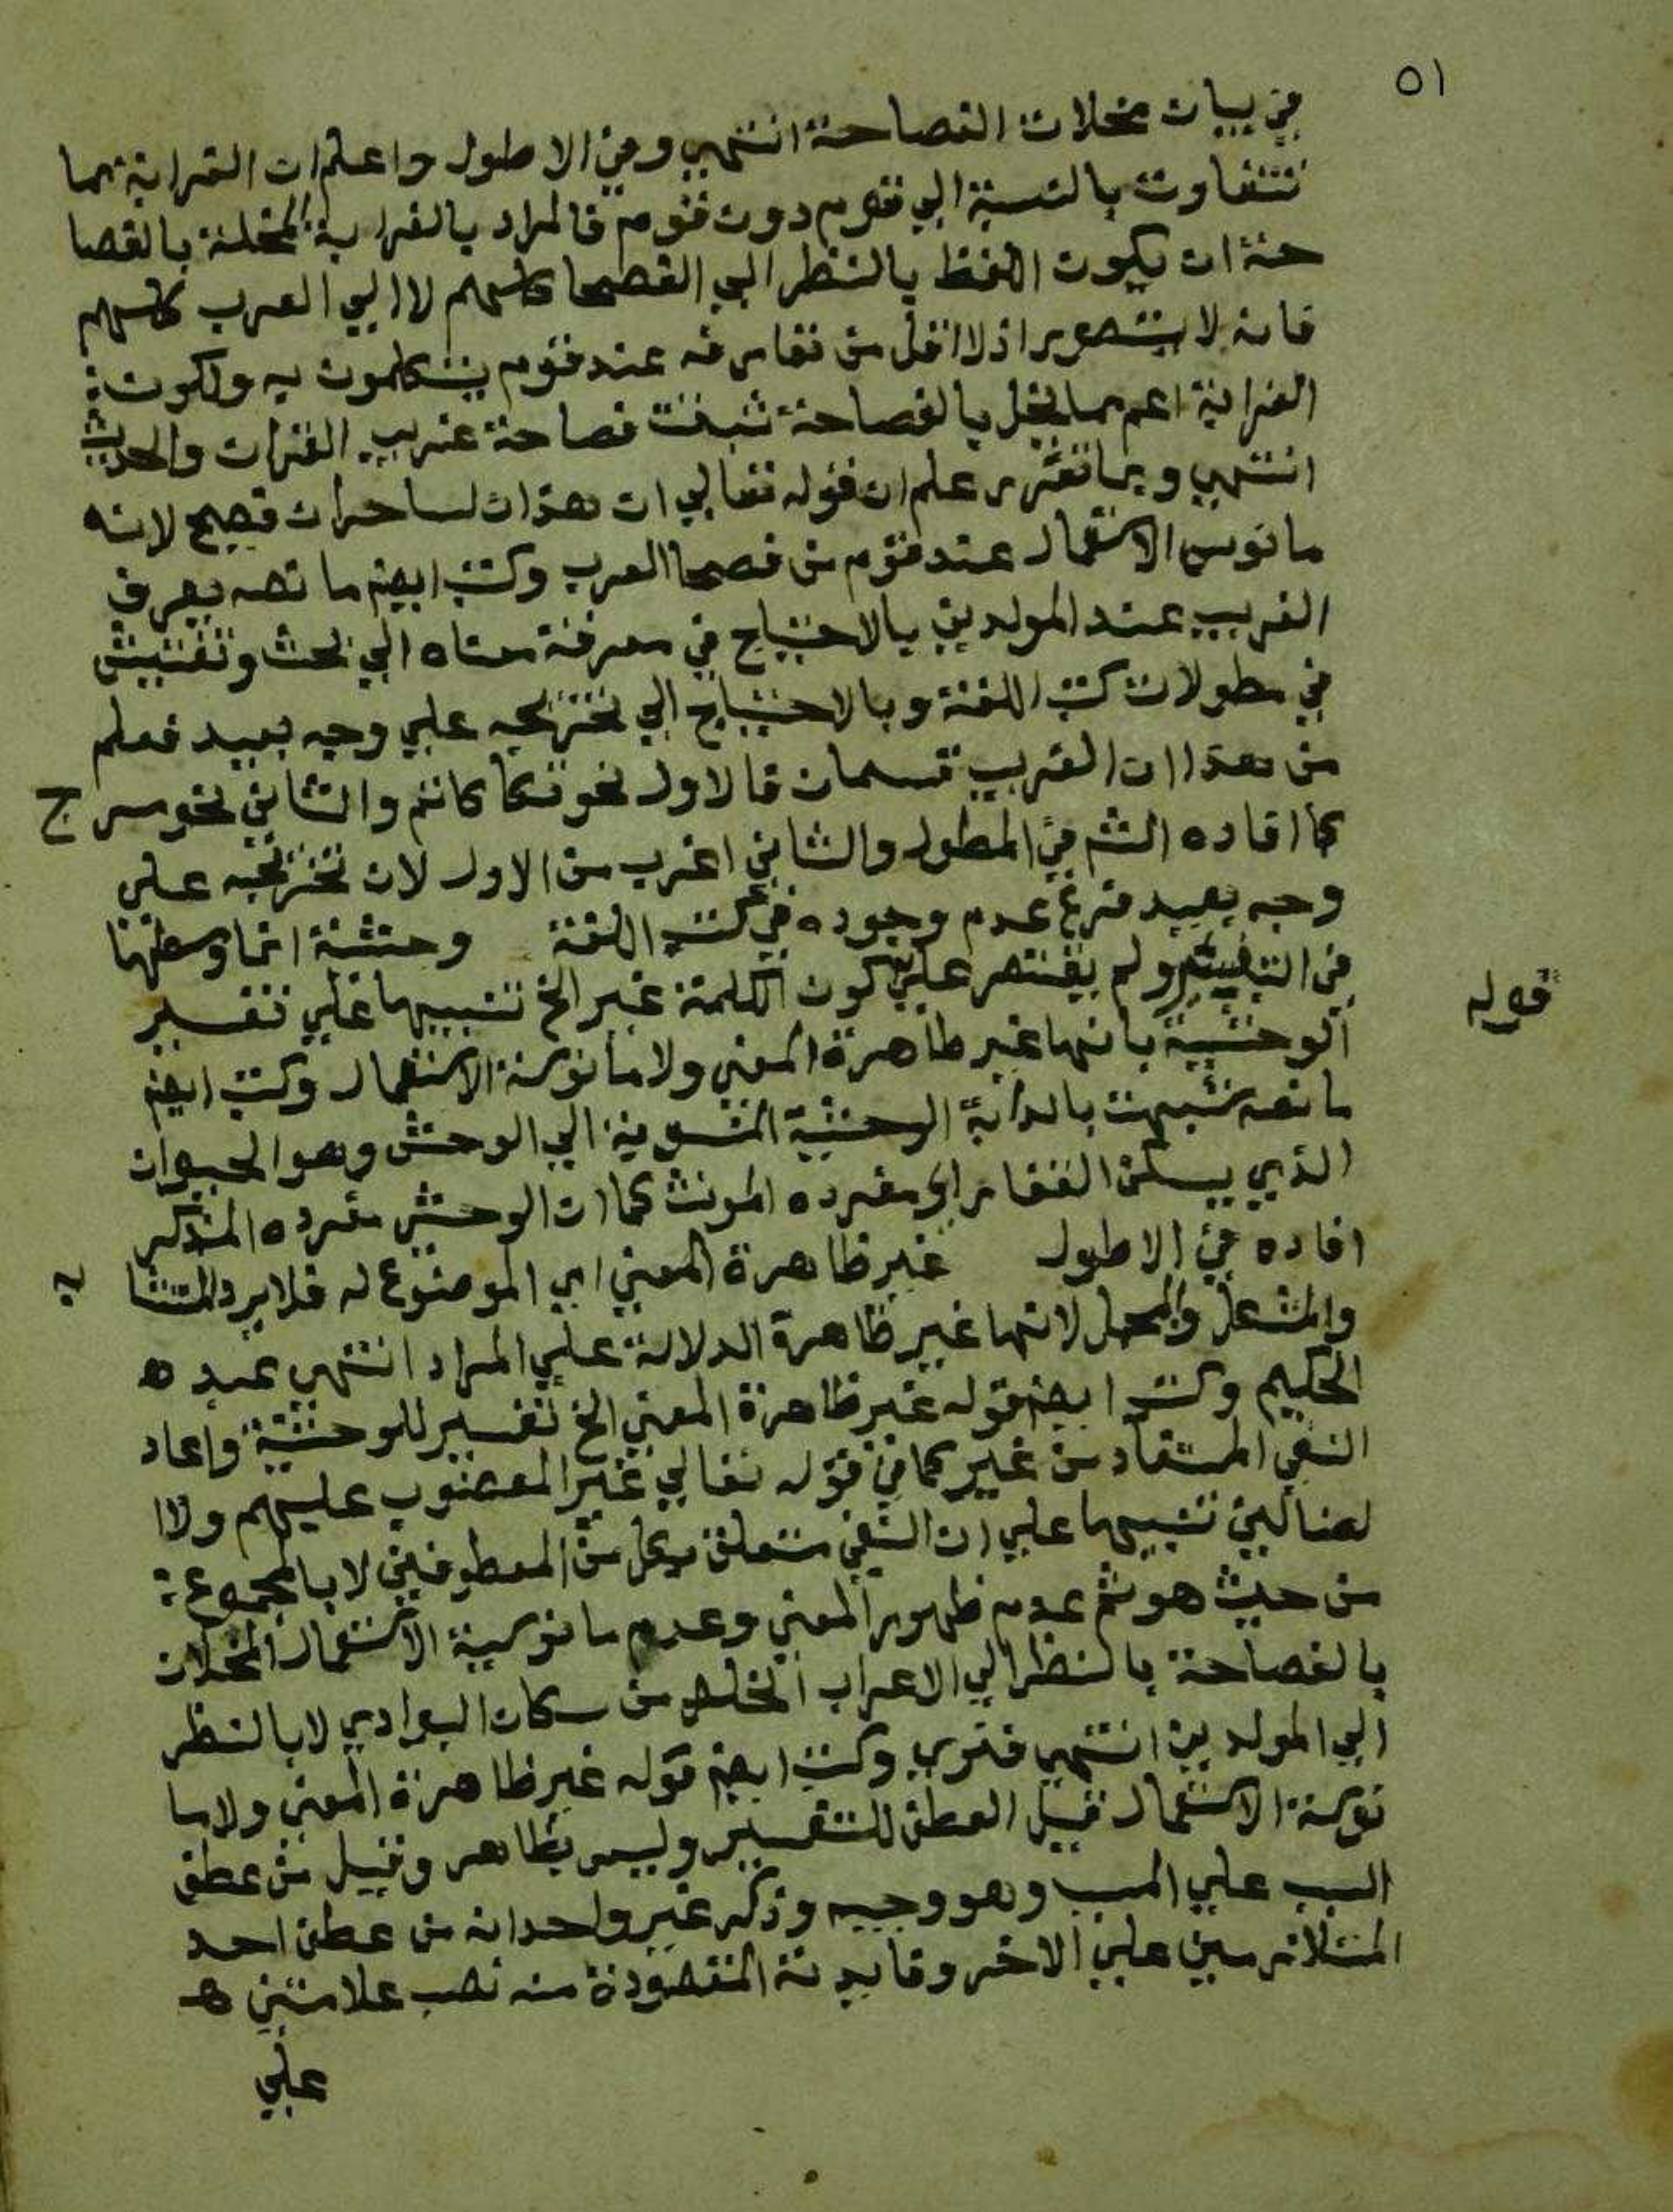 ٥١
في بيان مخلات الفصاحة انتهي وفي الاطول واعلم ان الغرابة مما
تتفاوت بالنسبة الي قوم دون قوم فالمراد بالغرابة المخلة بالفصا
حة ان يكون اللفظ بالنظر الي الفصحا كلهم لا الي العرب كلهم
فانه لا يتصور اذ لا اقل من تعارفه عند قوم يتكلمون به ولكون
الغرابة اعم مما يخل بالفصاحة ثبتت فصاحة غريب القران والحديث
انتهي وبما تقرر علم ان قوله تعالي ان هذان لساحران فصيح لانه
مانوس الاستعمال عند قوم من فصحا العرب وكتب ايضم ما نصه يعرف
الغريب عند المولدين بالاحتياج في معرفة معناه الي بحث وتفتيش
في مطولات كتب اللغة وبالاحتياج الي تخريجه علي وجه بعيد فعلم
من هذا ان الغريب قسمان فالاول نحو تكاكاتم والثاني نحو مسرج
كما افاده الشم في المطول والثاني اغرب من الاول لان تخريجه علي
وجه بعيد فرع عدم وجوده في كتب اللغة وحشية انما وسطها
قوله
في التفسير ولم يقتصر علي كون الكلمة غير الخ تنبيها علي تفسير
الوحشية بانها غير ظاهرة المعني ولا مانوسة الاستعمال وكتب ايضم
ما نصه شبهت بالدابة الوحشية المنسوبة الي الوحش وهو الحيوان
الذي يسكن القفار اي مفرده المونث كما ان الوحشي مفرده المذكر
افاده في الاطول غير ظاهرة المعني اي الموضوع له فلا يرد المتشابه
والمشكل والمجمل لانها غير ظاهرة الدلالة علي المراد انتهي عبد ه
الحكيم وكتب ايضم قوله غير ظاهرة المعني الخ تفسير للوحشية واعاد
النفي المستفاد من غير كما في قوله تعالي غير المغضوب عليهم ولا ا
لضالين تنبيها علي ان النفي متعلق بكل من المعطوفين لا بالمجموع
من حيث هو ثم عدم ظهور المعني وعدم مانوسية الاستعمال المخلان
بالفصاحة بالنظر الي الاعراب الخلص من سكان البوادي لا بالنظر
الي المولدين انتهي فنري وكتب ايضم قوله غير ظاهرة المعني ولا ما
نوسة الاستعمال قيل العطف للتفسير وليس بظاهر وقيل من عطف
السبب علي المسبب وهو وجيه وذكر غير واحد انه من عطف احد
المتلازمين علي الاخر وفايدته المقصودة منه نصب علامتين هـ
علي